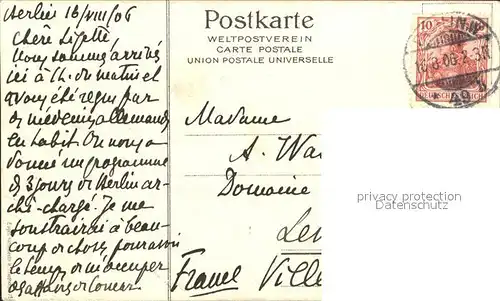 Berlin 16/VIII/06
Chère Lizette
Nous sommes arrivés
ici à 7 h. du matin et
avons été reçus par
des médecins allemands
en habit. On nous a
donné un programme
de 3 jours de Berlin ar-
chi-chargé. Je me
soustrairai à beau-
coup de choses pour avoir
le temps de m'occuper
Postkarte
WELTPOSTVEREIN
CARTE POSTALE
UNION POSTALE UNIVERSELLE
10
DEUTSCHES REICH
Madame
A. Wa
Domaine
Le
France Ville
privacy protection
Datenschutz